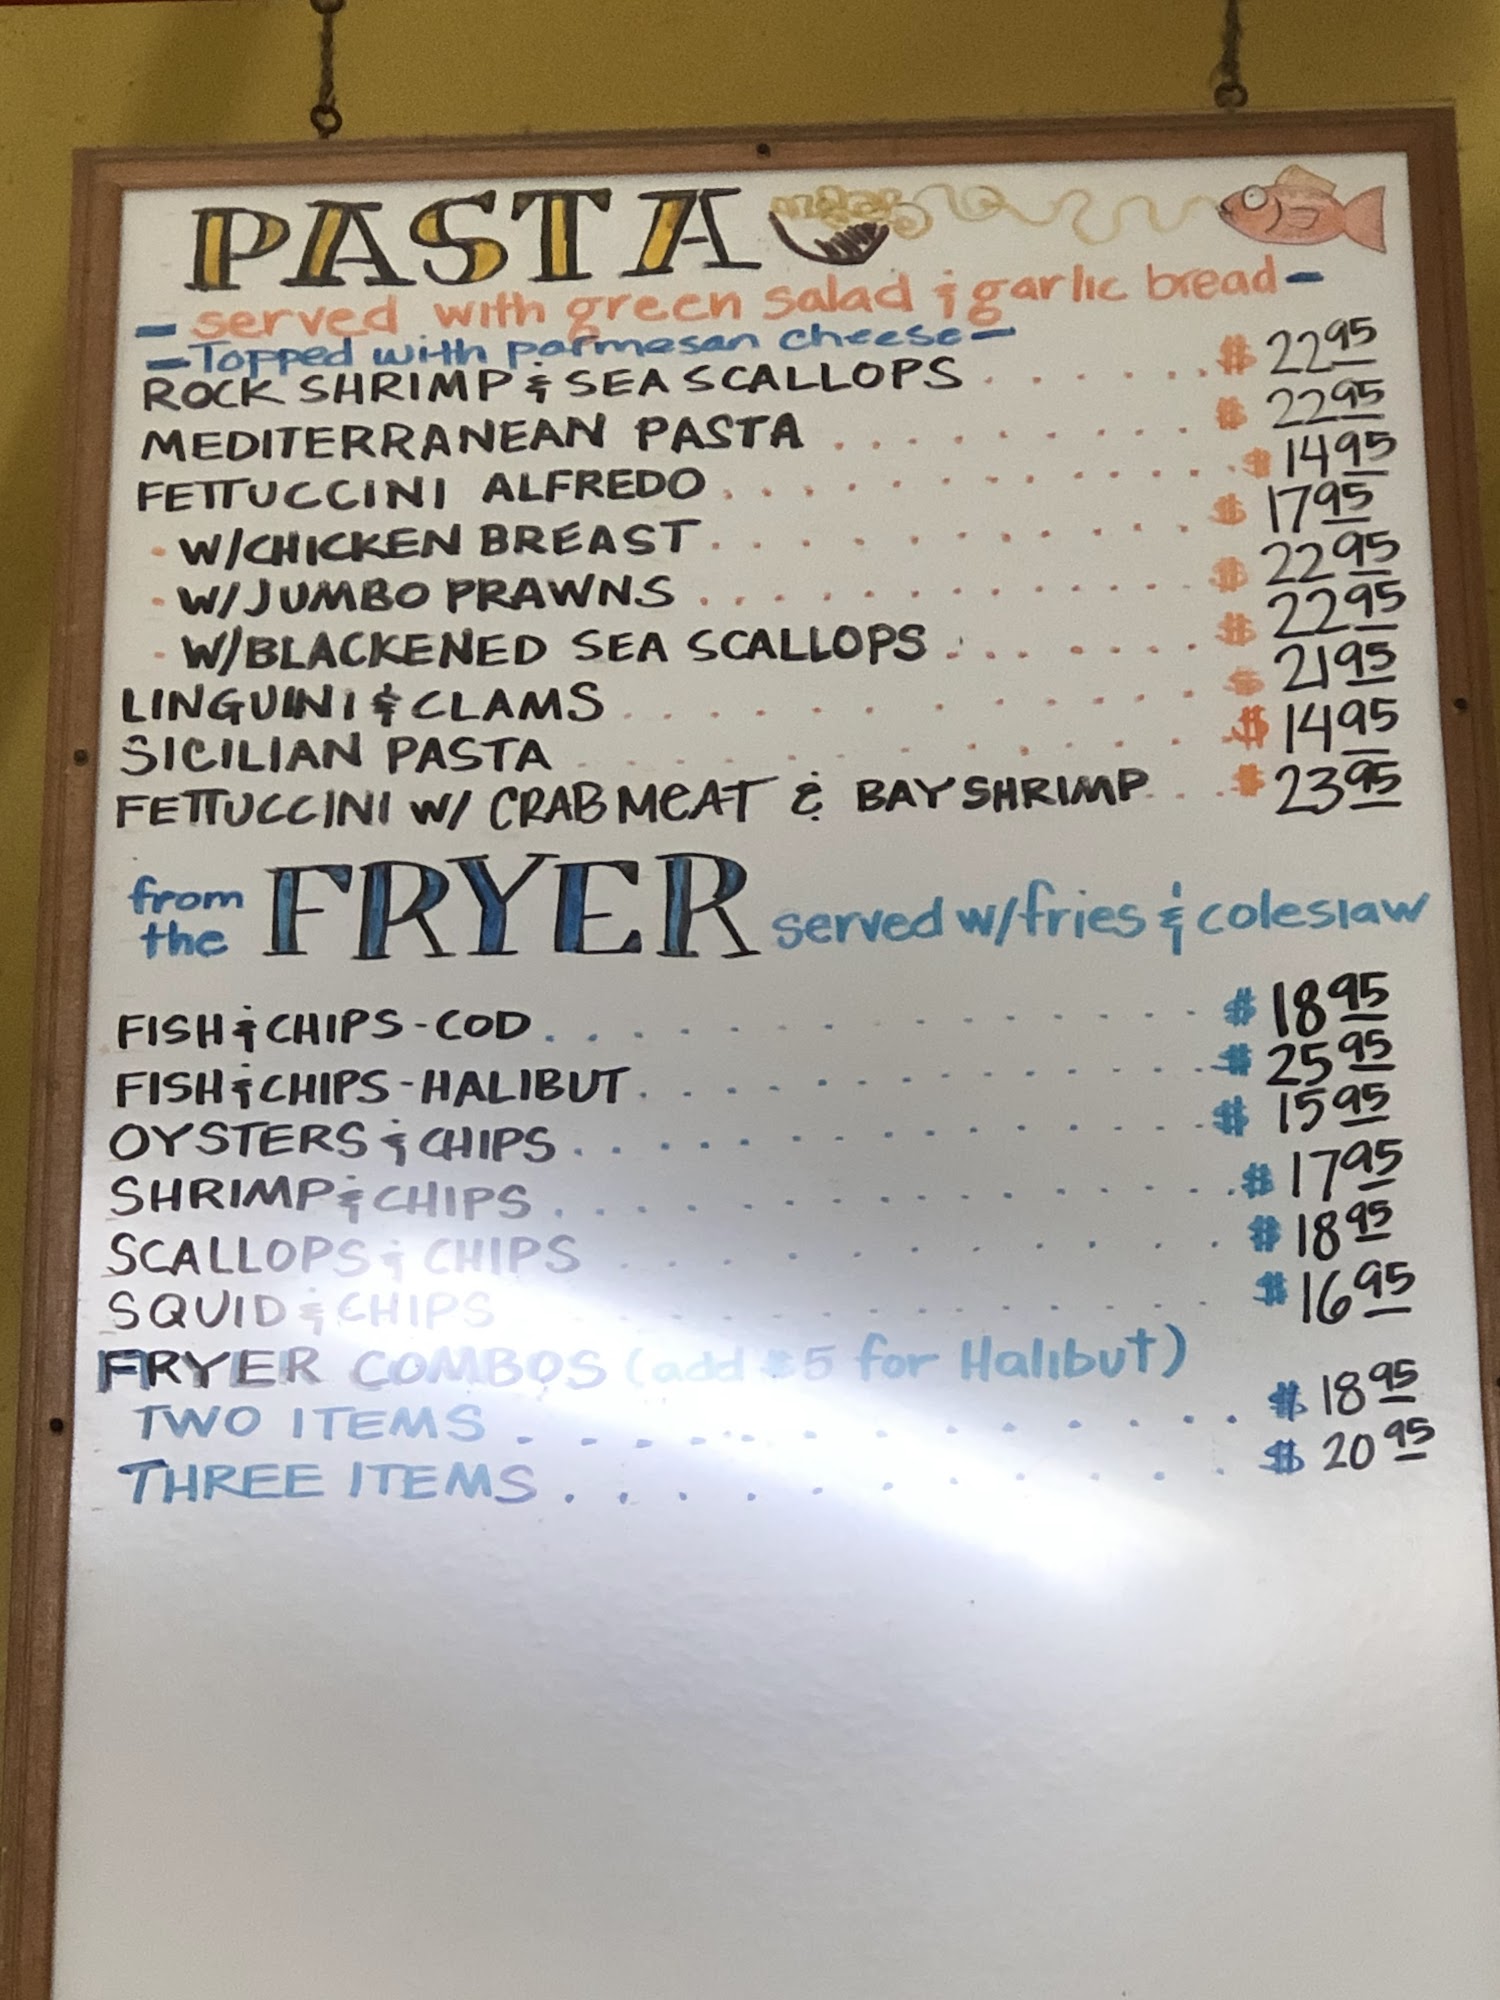 PASTA
- served with green salad & garlic bread -
- Topped with parmesan cheese -
ROCK SHRIMP & SEA SCALLOPS . . . . . . $ 22 95
MEDITERRANEAN PASTA . . . . . . . . . $ 22 95
FETTUCCINI ALFREDO . . . . . . . . . . . . $ 14 95
- W/CHICKEN BREAST . . . . . . . . . . . . $ 17 95
- W/JUMBO PRAWNS . . . . . . . . . . . . $ 22 95
- W/BLACKENED SEA SCALLOPS . . . . . . . $ 22 95
LINGUINI & CLAMS . . . . . . . . . . . . $ 21 95
SICILIAN PASTA . . . . . . . . . . . . $ 14 95
FETTUCCINI W/ CRABMEAT & BAY SHRIMP . . . $ 23 95
from the FRYER served w/fries & coleslaw
FISH & CHIPS - COD . . . . . . . . . . . . . . . $ 18 95
FISH & CHIPS - HALIBUT . . . . . . . . . . . . . $ 25 95
OYSTERS & CHIPS . . . . . . . . . . . . . . . $ 15 95
SHRIMP & CHIPS . . . . . . . . . . . . . . . . $ 17 95
SCALLOPS & CHIPS . . . . . . . . . . . . . . $ 18 95
SQUID & CHIPS . . . . . . . . . . . . . $ 16 95
FRYER COMBOS (add $5 for Halibut)
TWO ITEMS . . . . . . . . . . . . . $ 18 95
THREE ITEMS . . . . . . . . . . . . $ 20 95